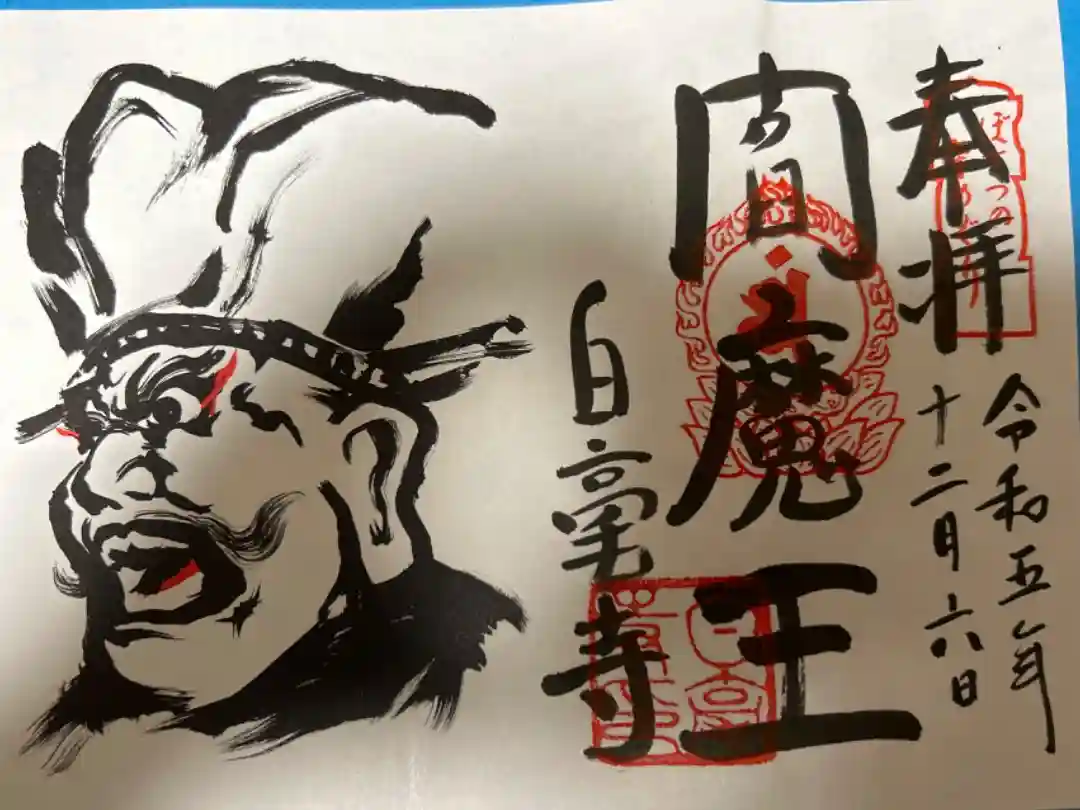 奉拝
令和五年
十二月六日
閻魔王
白毫寺